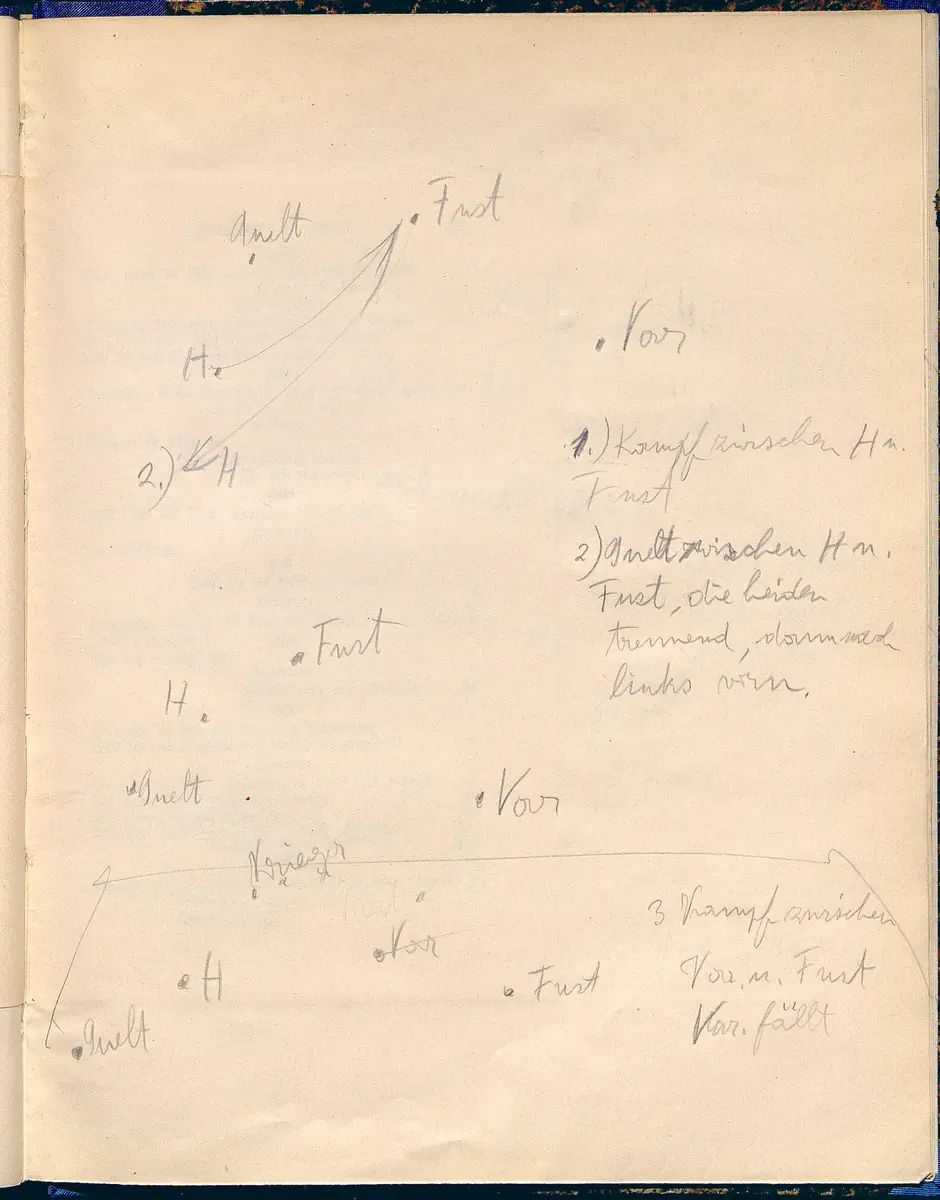 Fust
Guelt
Vorr
H
2.) H
1.) Kampf zwischen H u.
Fust
2) Guelt zwischen H u.
Fust, die beiden
trennend, dann nach
links vorn.
Fust
H
Guelt
Vorr
Krieger
3 Kampf zwischen
Var
H
Fust
Vor. u. Fust
Var. fällt
Guelt